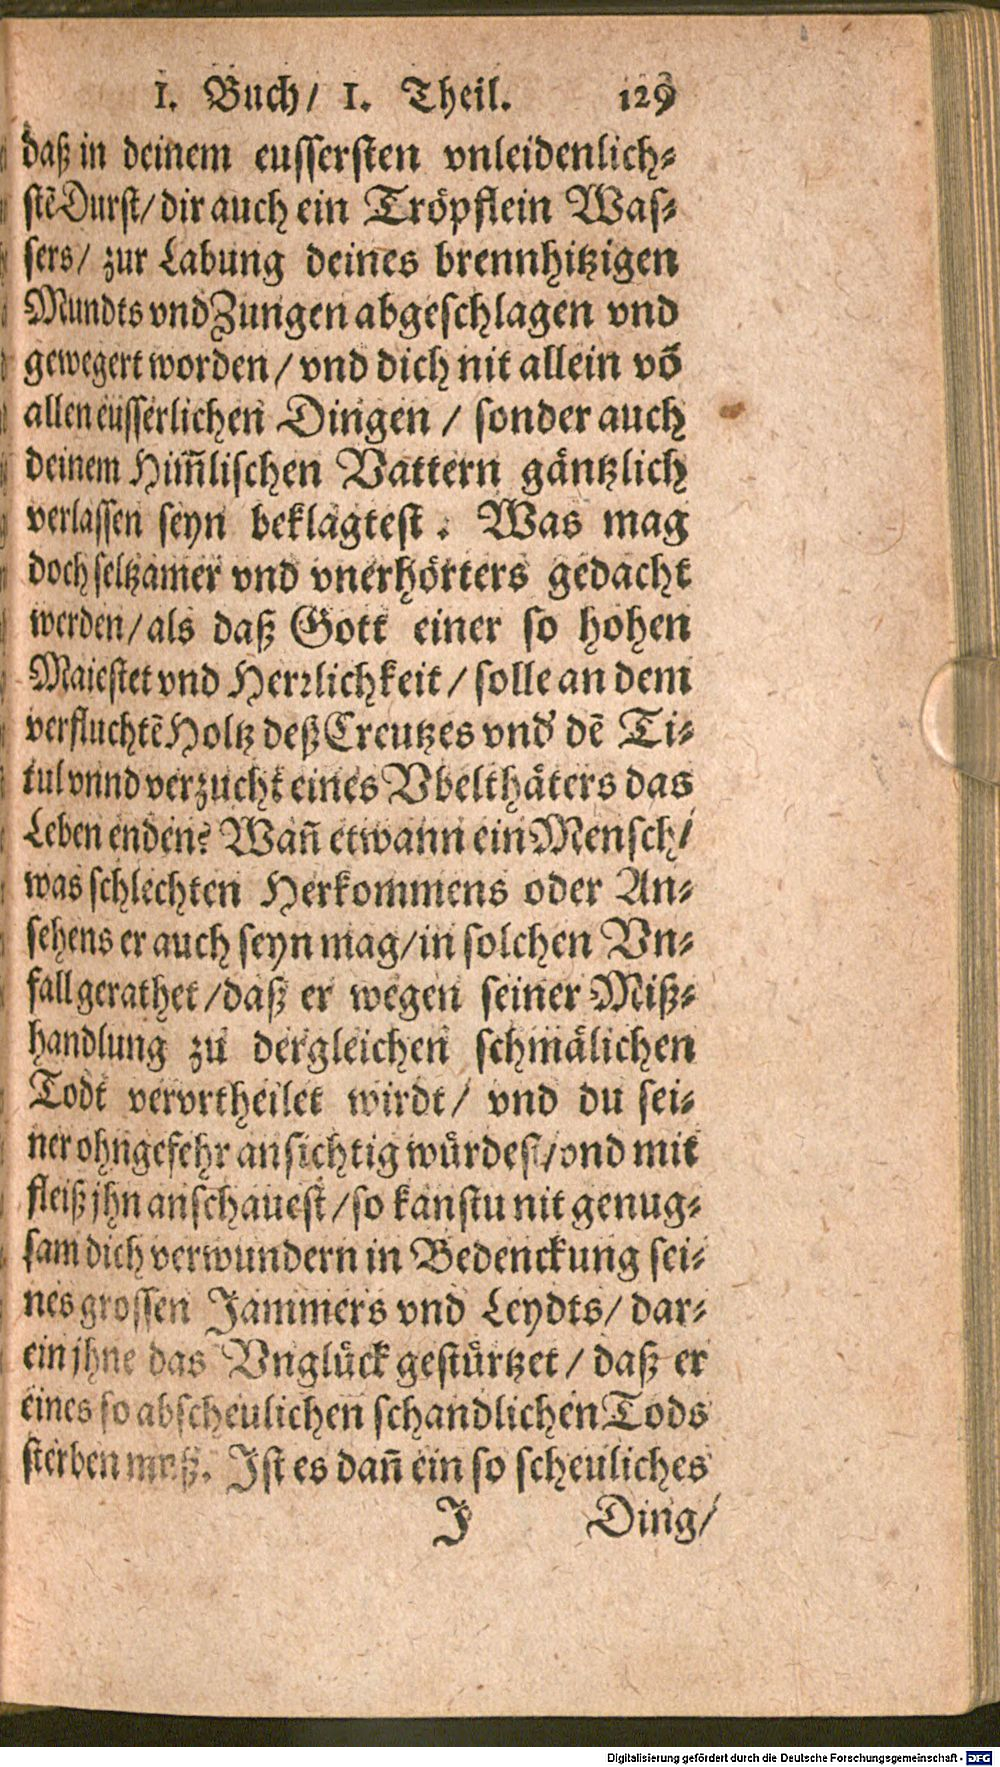 1. Buch/ 1. Theil. 129
daß in deinem eussersten vnleidenlich-
stē Durst/ dir auch ein Tröpflein Was-
sers/ zur Labung deines brennhitzigen
Mundts vnd Zungen abgeschlagen vnd
gewegert worden/ vnd dich nit allein vō
allen eusserlichen Dingen/ sonder auch
deinem Him̄lischen Vattern gäntzlich
verlassen seyn beklagtest. Was mag
doch seltzamer vnd vnerhörters gedacht
werden/ als daß Gott einer so hohen
Maiestet vnd Herrlichkeit/ solle an dem
verfluchtē Holtz deß Creutzes vnd dē Ti-
tul vnnd verzucht eines Vbelthäters das
Leben enden? Wan̄ etwann ein Mensch/
was schlechten Herkommens oder An-
sehens er auch seyn mag/ in solchen Vn-
fall gerathet/ daß er wegen seiner Miß-
handlung zu dergleichen schmälichen
Todt vervrtheilet wirdt/ vnd du sei-
ner ohngefehr ansichtig würdest/ vnd mit
fleiß jhn anschauest/ so kanstu nit genug-
sam dich verwundern in Bedenckung sei-
nes grossen Jammers vnd Leydts/ dar-
ein jhne das Vnglück gestürtzet/ daß er
eines so abscheulichen schandlichen Tods
sterben muß. Ist es dan̄ ein so scheuliches
J Ding/
Digitalisierung gefördert durch die Deutsche Forschungsgemeinschaft - DFG